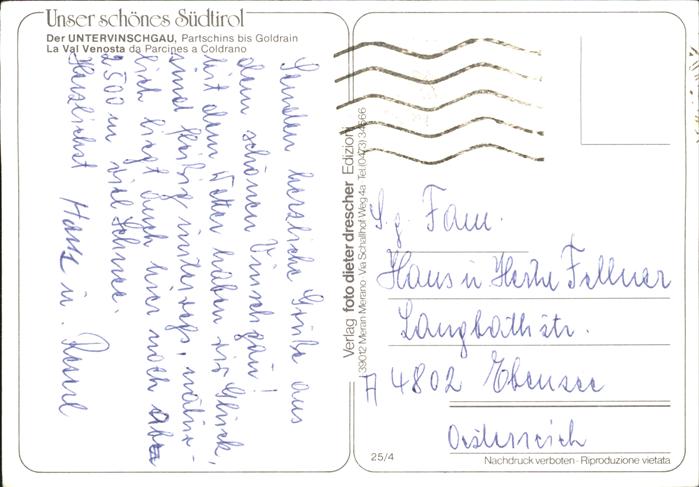 Unser schönes Südtirol
Der UNTERVINSCHGAU, Partschins bis Goldrain
La Val Venosta da Parcines a Coldrano
Senden herzliche Grüße aus
dem schönen Vinschgau!
Mit dem Wetter haben wir Glück,
sind fleißig unterwegs, natür-
lich liegt auch hier noch über
2500 m viel Schnee.
Herzlichst Hans u.
Verlag foto dieter drescher Edizioni
39012 Meran Merano Via Schallhof Weg 4a Tel.(0473)34566
S. g. Fam.
Hans u Herta Fellner
Langbathstr.
A 4802 Ebensee
Oesterreich
25/4
Nachdruck verboten - Riproduzione vietata